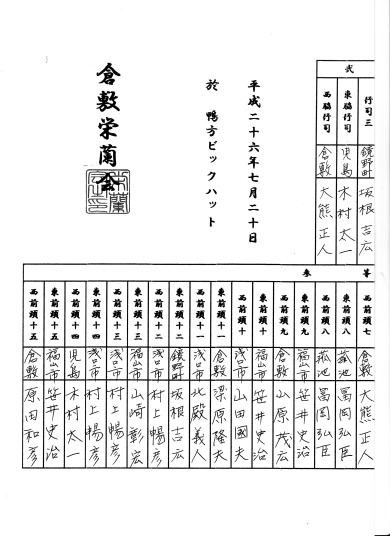 武
行司三 鏡野町 坂根吉広
東脇行司 児島 木村太一
西脇行司 倉敷 大熊正人
平成二十六年七月二十日
於 鴨方ビックハット
倉敷栄蘭会
等
参
西前頭七 倉敷 大熊正人
東前頭八 菰池 冨岡弘臣
西前頭八 菰池 冨岡弘臣
東前頭九 福山市 笹井史治
西前頭九 倉敷 山原茂広
東前頭十 福山市 笹井史治
西前頭十 浅口市 山田國夫
東前頭十一 倉敷 梁原隆夫
西前頭十一 浅口市 北殿義人
東前頭十二 鏡野町 坂根吉広
西前頭十二 浅口市 村上暢彦
東前頭十三 福山市 山崎彰宏
西前頭十三 浅口市 村上暢彦
東前頭十四 浅口市 村上暢彦
西前頭十四 児島 木村太一
東前頭十五 福山市 笹井史治
西前頭十五 倉敷 原田和彦